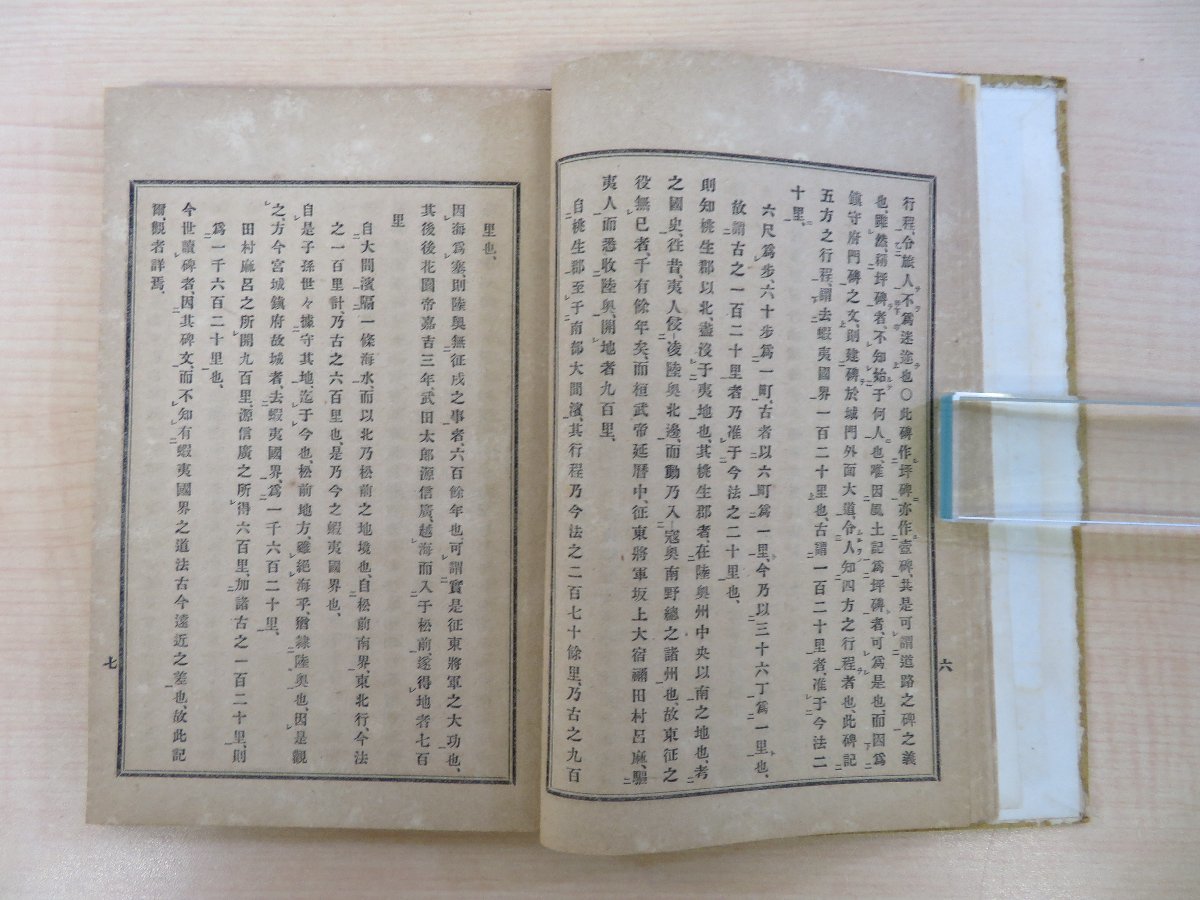 行程、令旅人不爲迷途也○此碑作坪碑、亦作壺碑、其是可謂道路之碑之義
也、雖然、稱坪碑者、不知始于何人也、唯因風土記爲坪碑者、可爲是也、而因爲
鎮守府門碑之文、則建碑於城門外面大道、令人知四方之行程者也、此碑記
五方之行程、謂去蝦夷國界一百二十里也、古謂一百二十里者、准于今法二
十里、
六尺爲歩、六十歩爲一町、古者以六町爲一里、今乃以三十六丁爲一里也、
故謂古之一百二十里者乃准于今法之二十里也、
則知桃生郡以北、盡沒于夷地也、其桃生郡者、在陸奥州中央以南之地也、考
之國史、往昔、夷人侵凌陸奥北邊、而動乃入寇奥南野總之諸州也、故東征之
役無已者、千有餘年矣、而桓武帝延暦中、征東將軍坂上大宿禰田村呂麻、驅
夷人而悉收陸奥、開地者九百里、
自桃生郡至于南部大間濱其行程乃今法之二百七十餘里、乃古之九百
六
里也、
因海爲塞、則陸奥無征戍之事者、六百餘年也、可謂實是征東將軍之大功也、
其後後花園帝嘉吉三年、武田太郎源信廣、越海而入于松前、遂得地者七百
里
自大間濱隔一條海水、而以北乃松前之地境也、自松前南界、東北行、今法
之一百里計、乃古之六百里也、是乃今之蝦夷國界也、
自是子孫世々據守其地、迄于今也、松前地方、雖絕海乎、猶隸陸奥也、因是觀
之、方今宮城鎮府故城者、去蝦夷國界、爲一千六百二十里、
田村麻呂之所開九百里、源信廣之所得六百里、加諸古之一百二十里、則
爲一千六百二十里也、
今世讀碑者、因其碑文、而不知有蝦夷國界之道法古今遠近之差也、故此記
爾、觀者詳焉、
七